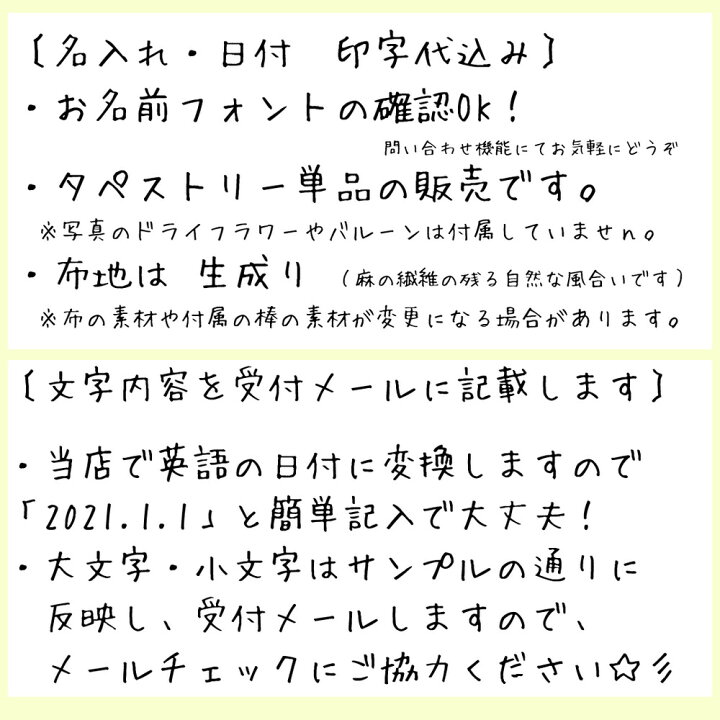 ［名入れ・日付　印字代込み］
・お名前フォントの確認OK！
問い合わせ機能にてお気軽にどうぞ
・タペストリー単品の販売です。
※写真のドライフラワーやバルーンは付属していません。
・布地は　生成り　（麻の繊維の残る自然な風合いです）
※布の素材や付属の棒の素材が変更になる場合があります。
［文字内容を受付メールに記載します］
・当店で英語の日付に変換しますので
「2021.1.1」と簡単記入で大丈夫！
・大文字・小文字はサンプルの通りに
反映し、受付メールしますので、
メールチェックにご協力ください☆彡